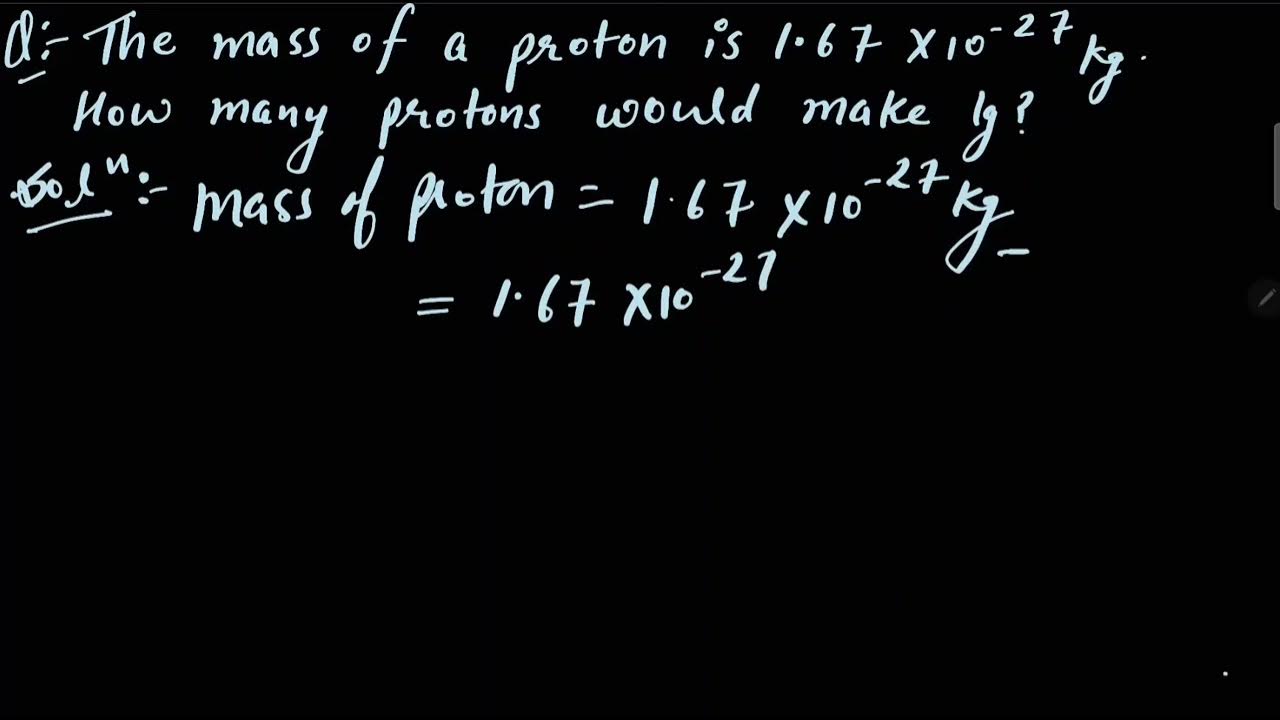 Q:- The mass of a proton is 1.67 ×10⁻²⁷ kg.
How many protons would make 1g?
Solⁿ:- Mass of proton = 1.67 ×10⁻²⁷ kg
= 1.67 ×10⁻²⁷